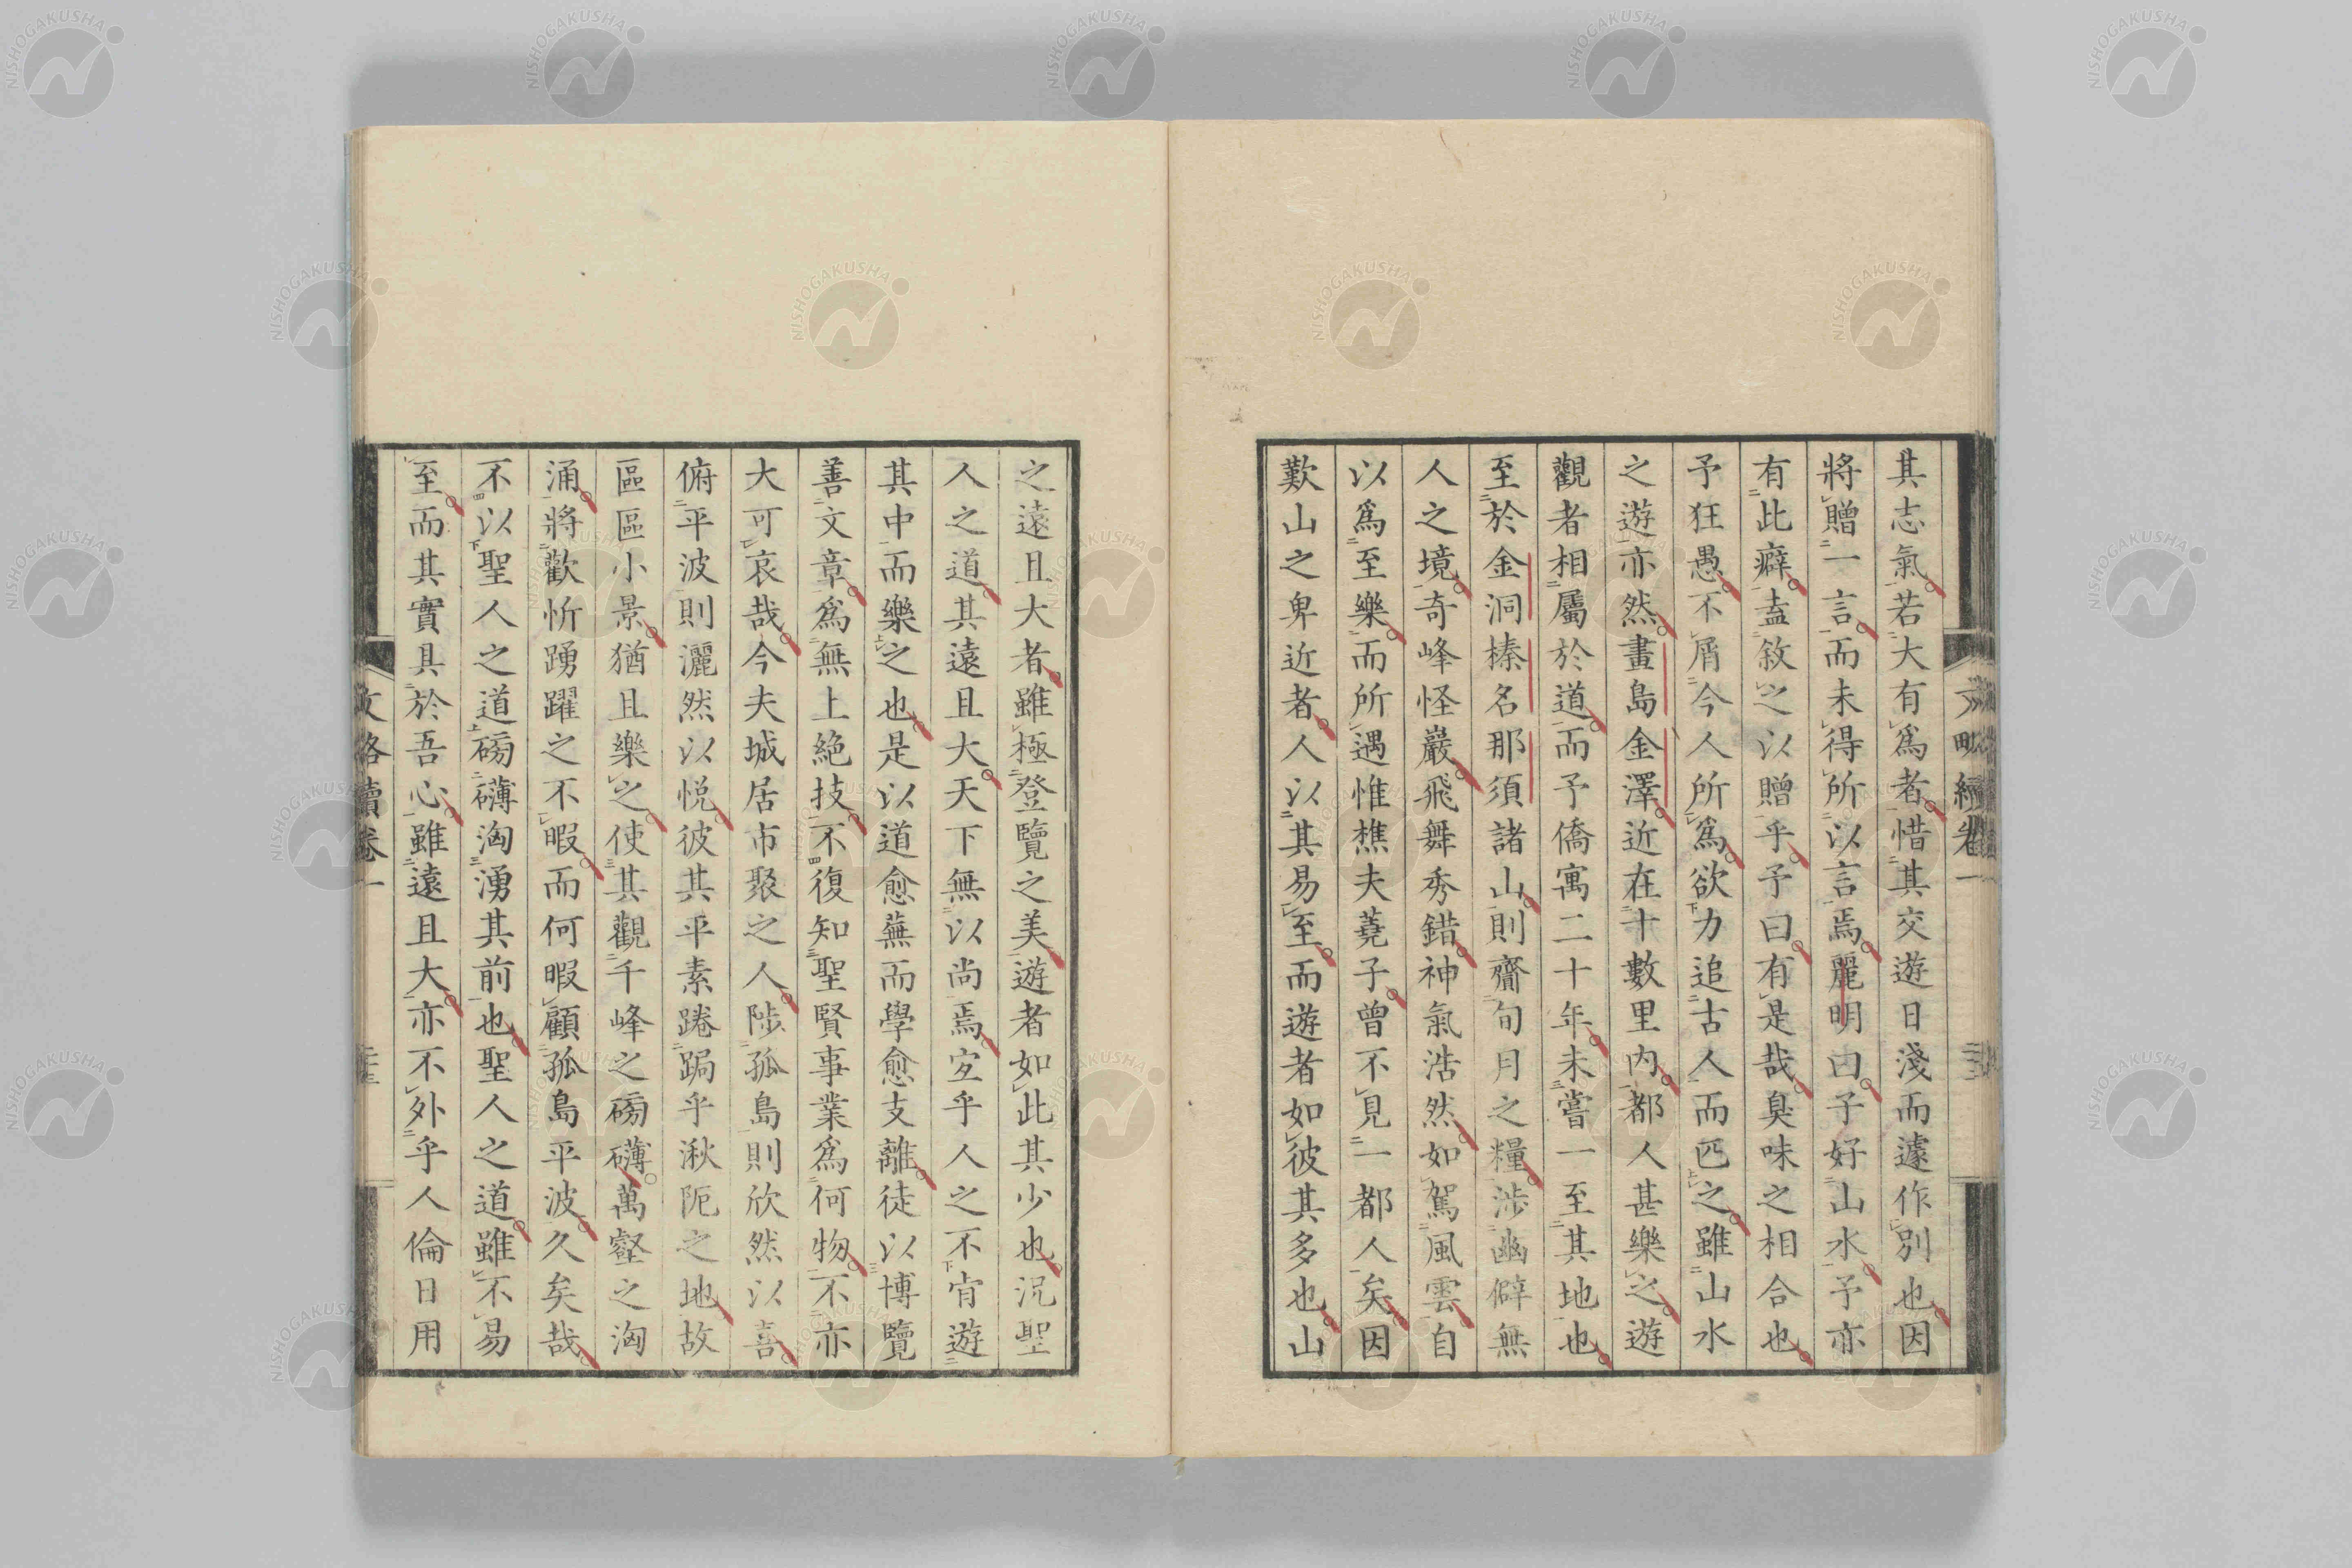 其志氣若大有爲者惜其交遊日淺而遽作別也因
將贈一言而未得所以言焉麗明曰子好山水予亦
有此癖盍敘之以贈乎予曰有是哉臭味之相合也
予狂愚不屑今人所爲欲力追古人而匹之雖山水
之遊亦然畫島金澤近在十數里内都人甚樂之遊
觀者相屬於道而予僑寓二十年未嘗一至其地也
至於金洞榛名那須諸山則齎旬月之糧涉幽僻無
人之境奇峰怪巖飛舞秀錯神氣浩然如駕風雲自
以爲至樂而所遇惟樵夫蕘子曾不見一都人矣因
歎山之卑近者人以其易至而遊者如彼其多也山
之遠且大者雖極登覽之美遊者如此其少也況聖
人之道其遠且大天下無以尚焉宜乎人之不肯遊
其中而樂之也是以道愈蕪而學愈支離徒以博覽
善文章爲無上絶技不復知聖賢事業爲何物不亦
大可哀哉今夫城居市聚之人陟孤島則欣然以喜
俯平波則灑然以悦彼其平素踡跼乎湫阨之地故
區區小景猶且樂之使其觀千峰之磅礴萬壑之洶
涌將歡忻踴躍之不暇而何暇顧孤島平波久矣哉
不以聖人之道磅礴洶湧其前也聖人之道雖不易
至而其實具於吾心雖遠且大亦不外乎人倫日用
文略續卷一